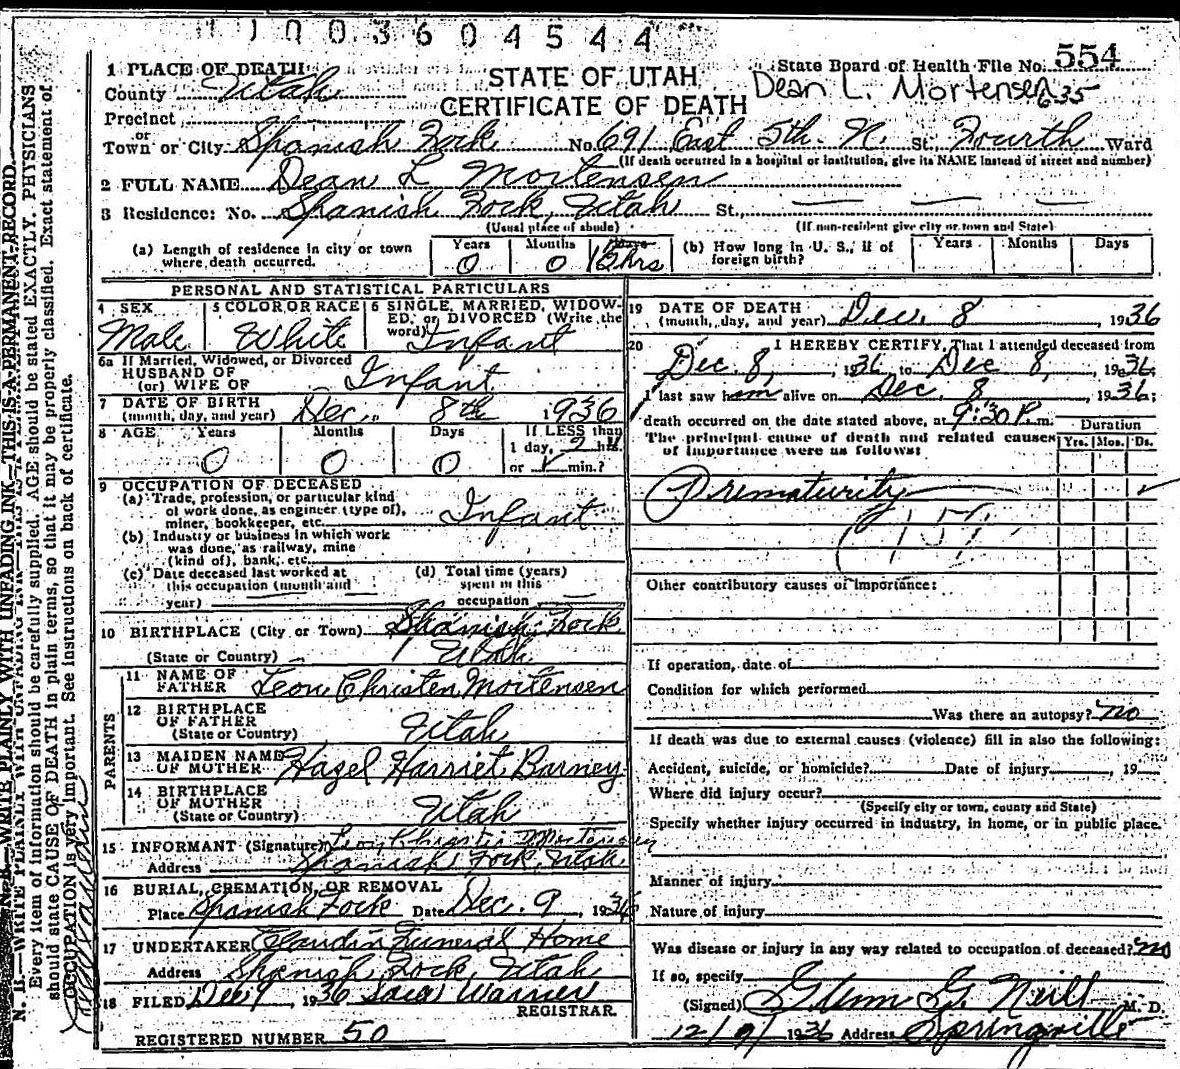 1003604544
State Board of Health File No. 554
1 PLACE OF DEATH
STATE OF UTAH
Dean L. Mortensen
County Utah
CERTIFICATE OF DEATH
635
Precinct
or
Town or City Spanish Fork No. 691 East 5th. N. St. Fourth Ward
(If death occurred in a hospital or institution, give its NAME instead of street and number)
2 FULL NAME Dean L Mortensen
3 Residence: No. Spanish Fork, Utah St.,
(Usual place of abode) (If non-resident give city or town and State)
(a) Length of residence in city or town where death occurred. Years 0 Months 0 Days 12 hrs (b) How long in U. S., if of foreign birth? Years Months Days
PERSONAL AND STATISTICAL PARTICULARS
4 SEX Male
5 COLOR OR RACE White
6 SINGLE, MARRIED, WIDOWED, or DIVORCED (Write the word) Infant
6a If Married, Widowed, or Divorced
HUSBAND OF
(or) WIFE OF Infant
7 DATE OF BIRTH
(month, day, and year) Dec. 8th 1936
8 AGE Years 0 Months 0 Days 0 If LESS than
1 day, hrs.
or min.?
9 OCCUPATION OF DECEASED
(a) Trade, profession, or particular kind
of work done, as engineer (type of),
miner, bookkeeper, etc. Infant
(b) Industry or business in which work
was done, as railway, mine
(kind of), bank, etc.
(c) Date deceased last worked at
this occupation (month and
year)
(d) Total time (years)
spent in this
occupation
10 BIRTHPLACE (City or Town) Spanish Fork
(State or Country) Utah
PARENTS
11 NAME OF
FATHER Leon Christen Mortensen
12 BIRTHPLACE
OF FATHER
(State or Country) Utah
13 MAIDEN NAME
OF MOTHER Hazel Harriet Barney
14 BIRTHPLACE
OF MOTHER
(State or Country) Utah
15 INFORMANT (Signature) Leon Christen Mortensen
Address Spanish Fork, Utah
16 BURIAL, CREMATION, OR REMOVAL
Place Spanish Fork Date Dec. 9, 1936
17 UNDERTAKER Claudin Funeral Home
Address Spanish Fork, Utah
18 FILED Dec 9 1936 Warner
REGISTRAR.
REGISTERED NUMBER 50
19 DATE OF DEATH
(month, day, and year) Dec. 8, 1936
20 I HEREBY CERTIFY, That I attended deceased from
Dec. 8, 1936, to Dec 8, 1936;
I last saw him alive on Dec. 8, 1936;
death occurred on the date stated above, at 9:30 P. m.
The principal cause of death and related causes
of importance were as follows:
Duration
Yrs. Mos. Ds.
Prematurity
Other contributory causes of importance:
If operation, date of
Condition for which performed
Was there an autopsy? no
If death was due to external causes (violence) fill in also the following:
Accident, suicide, or homicide? Date of injury , 19
Where did injury occur?
(Specify city or town, county and State)
Specify whether injury occurred in industry, in home, or in public place.
Manner of injury
Nature of injury
Was disease or injury in any way related to occupation of deceased? no
If so, specify
(Signed) Glenn G. Neill M. D.
12/9/1936 Address Springville
N. B.—WRITE PLAINLY WITH UNFADING INK—THIS IS A PERMANENT RECORD.
Every item of information should be carefully supplied. AGE should be stated EXACTLY. PHYSICIANS
should state CAUSE OF DEATH in plain terms, so that it may be properly classified. Exact statement of
OCCUPATION is very important. See instructions on back of certificate.